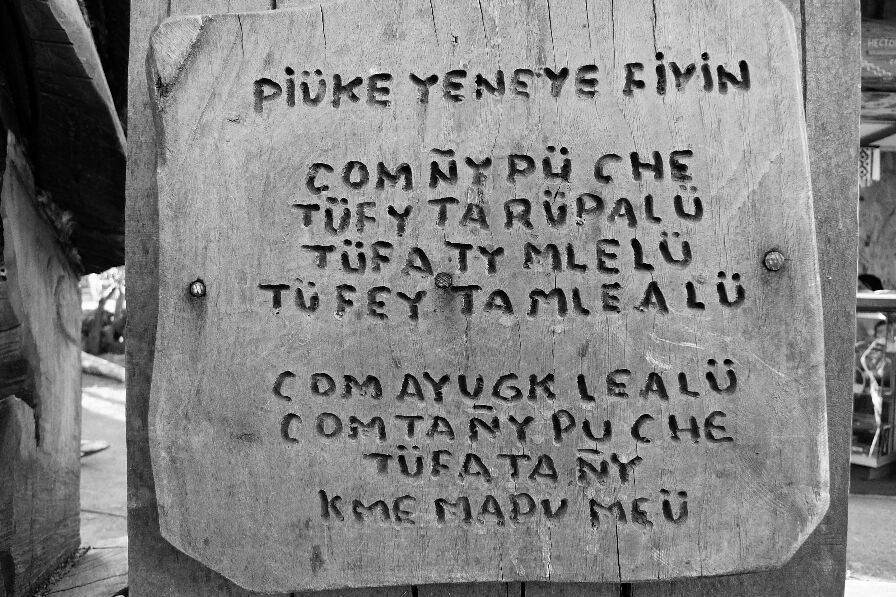 PIÜKE YENEYE FIYIN
COM ÑY PÜ CHE
TÜFY TA RÜPALÜ
TÜFA TY MLELÜ
TÜFEY TA MLEALÜ
COM AYUGK LEALÜ
COM TA ÑY PU CHE
TÜFA TA ÑY
KME MAPU MEÜ